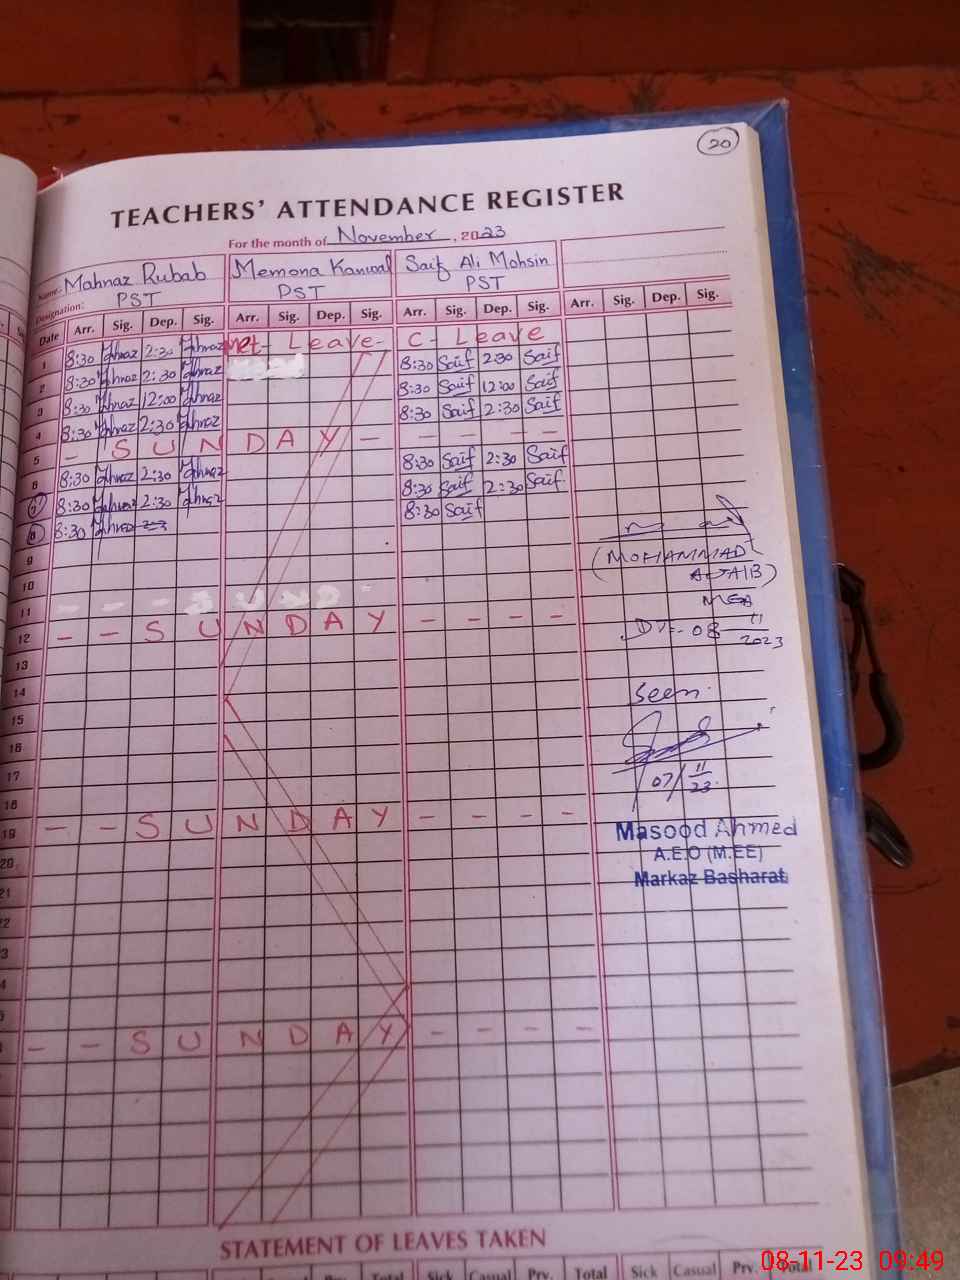 20
TEACHERS' ATTENDANCE REGISTER
For the month of November, 2023
Name: Mahnaz Rubab Memona Kanwal Saif Ali Mohsin
Designation: PST PST PST
Date Arr. Sig. Dep. Sig. Arr. Sig. Dep. Sig. Arr. Sig. Dep. Sig. Arr. Sig. Dep. Sig.
1 8:30 2:30 Met- Leave- C- Leave
2 8:30 2:30 8:30 Saif 2:30 Saif
3 8:30 12:00 8:30 Saif 12:00 Saif
4 8:30 2:30 8:30 Saif 2:30 Saif
5 - S U N D A Y - - - - -
6 8:30 2:30 8:30 Saif 2:30 Saif
7 8:30 2:30 8:30 Saif 2:30 Saif
8 8:30 8:30 Saif
9
10
11
12 - - S U N D A Y - - - -
13
14
15
16
17
18
19 - - S U N D A Y - - - -
20
21
22
- - S U N D A Y - - - -
(MOHAMMAD
AJAIB)
MEA
DT-08 11
2023
Seen
07/11
23
Masood Ahmed
A.E.O (M.EE)
Markaz Basharat
STATEMENT OF LEAVES TAKEN
Total Sick Casual Prv. Total Sick Casual Prv. Total
08-11-23 09:49